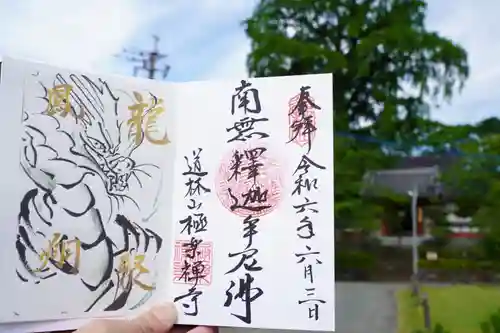 奉拝 令和六年六月三日
南無釋迦牟尼佛
道林山極楽禅寺
龍